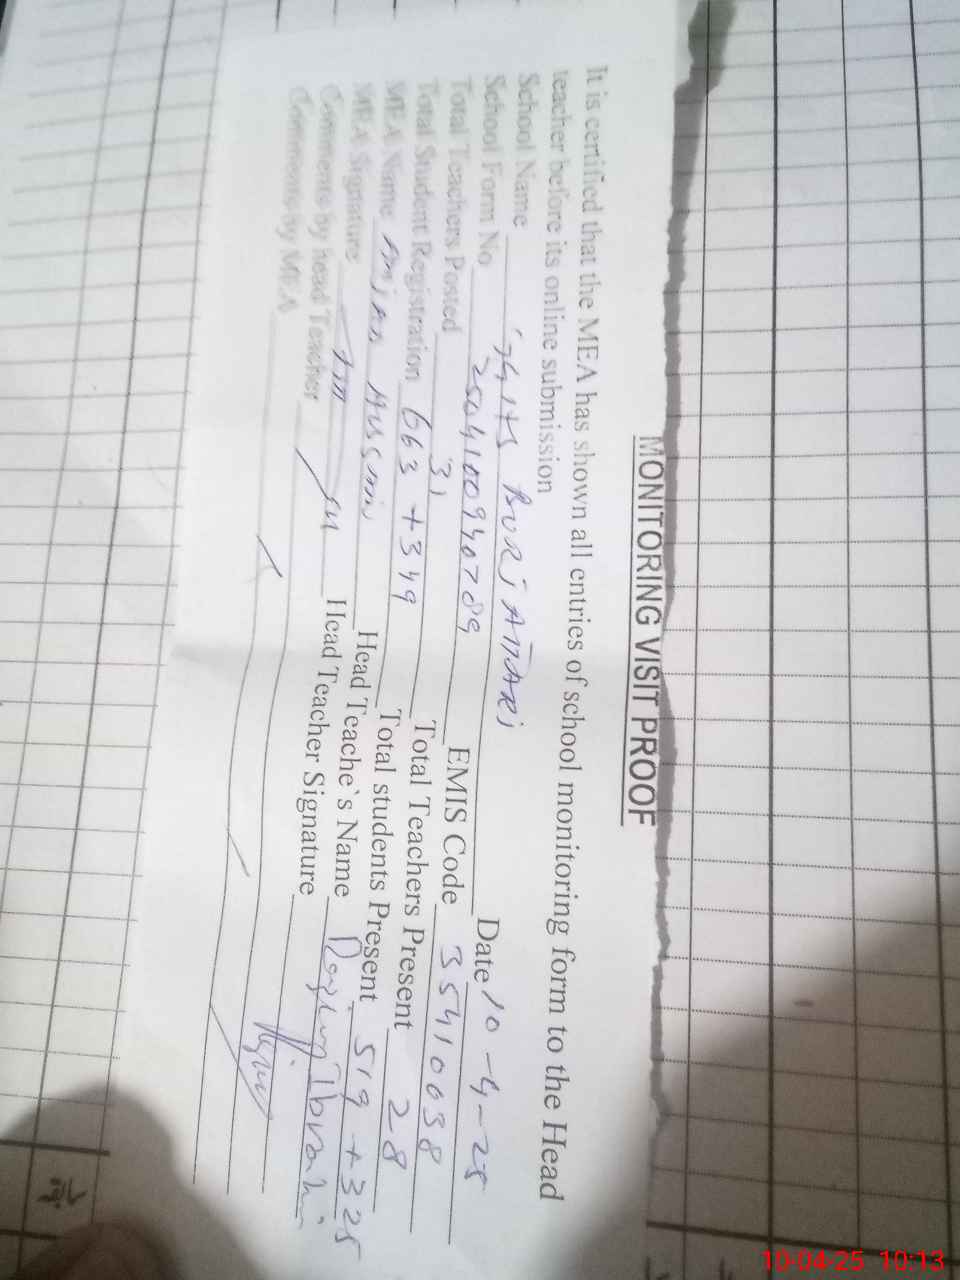 MONITORING VISIT PROOF
It is certified that the MEA has shown all entries of school monitoring form to the Head
teacher before its online submission
School Name BURJ ATTARI Date 10-4-25
School Form No 2504100940789 EMIS Code 35410038
Total Teachers Posted 31 Total Teachers Present 28
Total Student Registration 663 +349 Total students Present 519 +325
MEA Name Amjad Hussain Head Teache`s Name Ibrahim
MEA Signature Head Teacher Signature
Coments by head Teacher
Comments by MEA
10-04-25 10:13